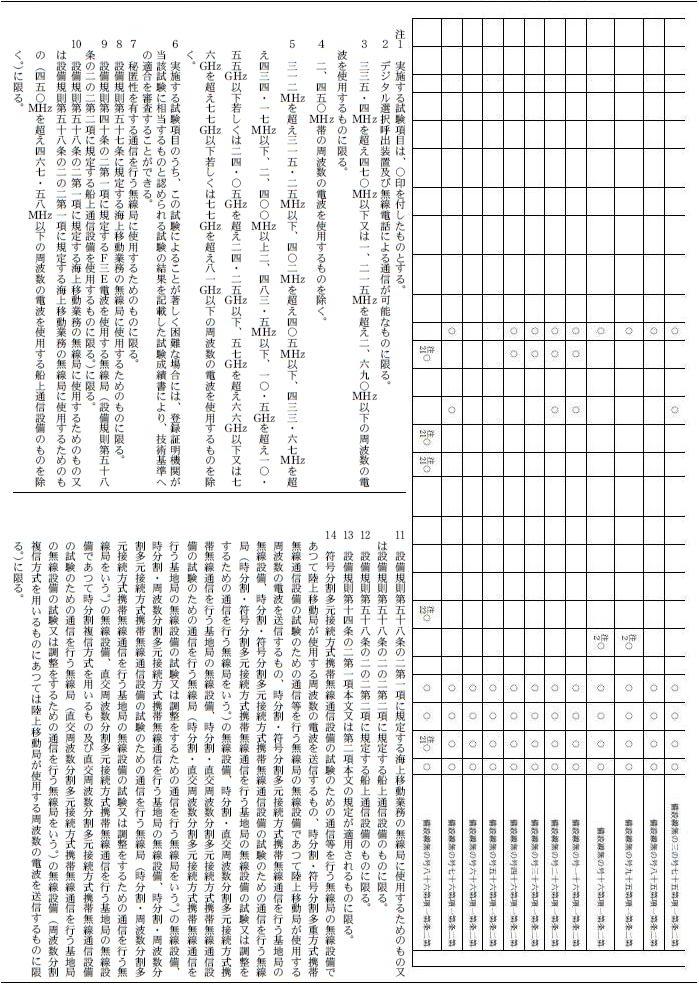 第二条第一項第五十七号の三の無線設備
第二条第一項第五十八号の無線設備
第二条第一項第五十九号の無線設備
第二条第一項第六十号の無線設備
第二条第一項第六十一号の無線設備
第二条第一項第六十二号の無線設備
第二条第一項第六十三号の無線設備
第二条第一項第六十四号の無線設備
第二条第一項第六十五号の無線設備
第二条第一項第六十六号の無線設備
第二条第一項第六十七号の無線設備
第二条第一項第六十八号の無線設備
注1 実施する試験項目は、○印を付したものとする。
2 デジタル選択呼出装置及び無線電話による通信が可能なものに限る。
3 三三五・四MHzを超え四七〇MHz以下又は一、二一五MHzを超え二、六九〇MHz以下の周波数の電
波を使用するものに限る。
4 二、四五〇MHz帯の周波数の電波を使用するものを除く。
5 三一二MHzを超え三一五・二五MHz以下、四〇二MHzを超え四〇五MHz以下、四三三・六七MHzを超
え四三四・一七MHz以下、二、四〇〇MHz以上二、四八三・五MHz以下、一〇・五GHzを超え一〇・
五五GHz以下若しくは二四・〇五GHzを超え二四・二五GHz以下、五七GHzを超え六六GHz以下又は七
六GHzを超え七七GHz以下若しくは七七GHzを超え八一GHz以下の周波数の電波を使用するものを除
く。
6 実施する試験項目のうち、この試験によることが著しく困難な場合には、登録証明機関が
当該試験に相当するものと認められる試験の結果を記載した試験成績書により、技術基準へ
の適合を審査することができる。
7 秘匿性を有する通信を行う無線局に使用するためのものに限る。
8 設備規則第五十七条に規定する海上移動業務の無線局に使用するためのものに限る。
9 設備規則第四十条の二第一項に規定するF三E電波を使用する無線局(設備規則第五十八
条の二の二第二項に規定する船上通信設備を使用するものに限る。)に限る。
10 設備規則第五十八条の二第一項に規定する海上移動業務の無線局に使用するためのもの又
は設備規則第五十八条の二の二第一項に規定する海上移動業務の無線局に使用するためのも
の(四五〇MHzを超え四六七・五八MHz以下の周波数の電波を使用する船上通信設備のものを除
く。)に限る。
11 設備規則第五十八条の二第一項に規定する海上移動業務の無線局に使用するためのもの又
は設備規則第五十八条の二の二第二項に規定する船上通信設備のものに限る。
12 設備規則第五十八条の二の二第二項に規定する船上通信設備のものに限る。
13 設備規則第十四条の二第一項本文又は第二項本文の規定が適用されるものに限る。
14 符号分割多元接続方式携帯無線通信設備の試験のための通信等を行う無線局の無線設備で
あつて陸上移動局が使用する周波数の電波を送信するもの、時分割・符号分割多重方式携帯
無線通信設備の試験のための通信等を行う無線局の無線設備であつて陸上移動局が使用する
周波数の電波を送信するもの、時分割・符号分割多元接続方式携帯無線通信を行う基地局の
無線設備、時分割・符号分割多元接続方式携帯無線通信設備の試験のための通信を行う無線
局(時分割・符号分割多元接続方式携帯無線通信を行う基地局の無線設備の試験又は調整を
するための通信を行う無線局をいう。)の無線設備、時分割・直交周波数分割多元接続方式携
帯無線通信を行う基地局の無線設備、時分割・直交周波数分割多元接続方式携帯無線通信設
備の試験のための通信を行う無線局(時分割・直交周波数分割多元接続方式携帯無線通信を
行う基地局の無線設備の試験又は調整をするための通信を行う無線局をいう。)の無線設備、
時分割・周波数分割多元接続方式携帯無線通信を行う基地局の無線設備、時分割・周波数分
割多元接続方式携帯無線通信設備の試験のための通信を行う無線局(時分割・周波数分割多
元接続方式携帯無線通信を行う基地局の無線設備の試験又は調整をするための通信を行う無
線局をいう。)の無線設備、直交周波数分割多元接続方式携帯無線通信を行う基地局の無線設
備であつて時分割複信方式を用いるもの及び直交周波数分割多元接続方式携帯無線通信設備
の試験のための通信を行う無線局(直交周波数分割多元接続方式携帯無線通信を行う基地局
の無線設備の試験又は調整をするための通信を行う無線局をいう。)の無線設備(周波数分割
複信方式を用いるものにあつては陸上移動局が使用する周波数の電波を送信するものに限
る。)に限る。